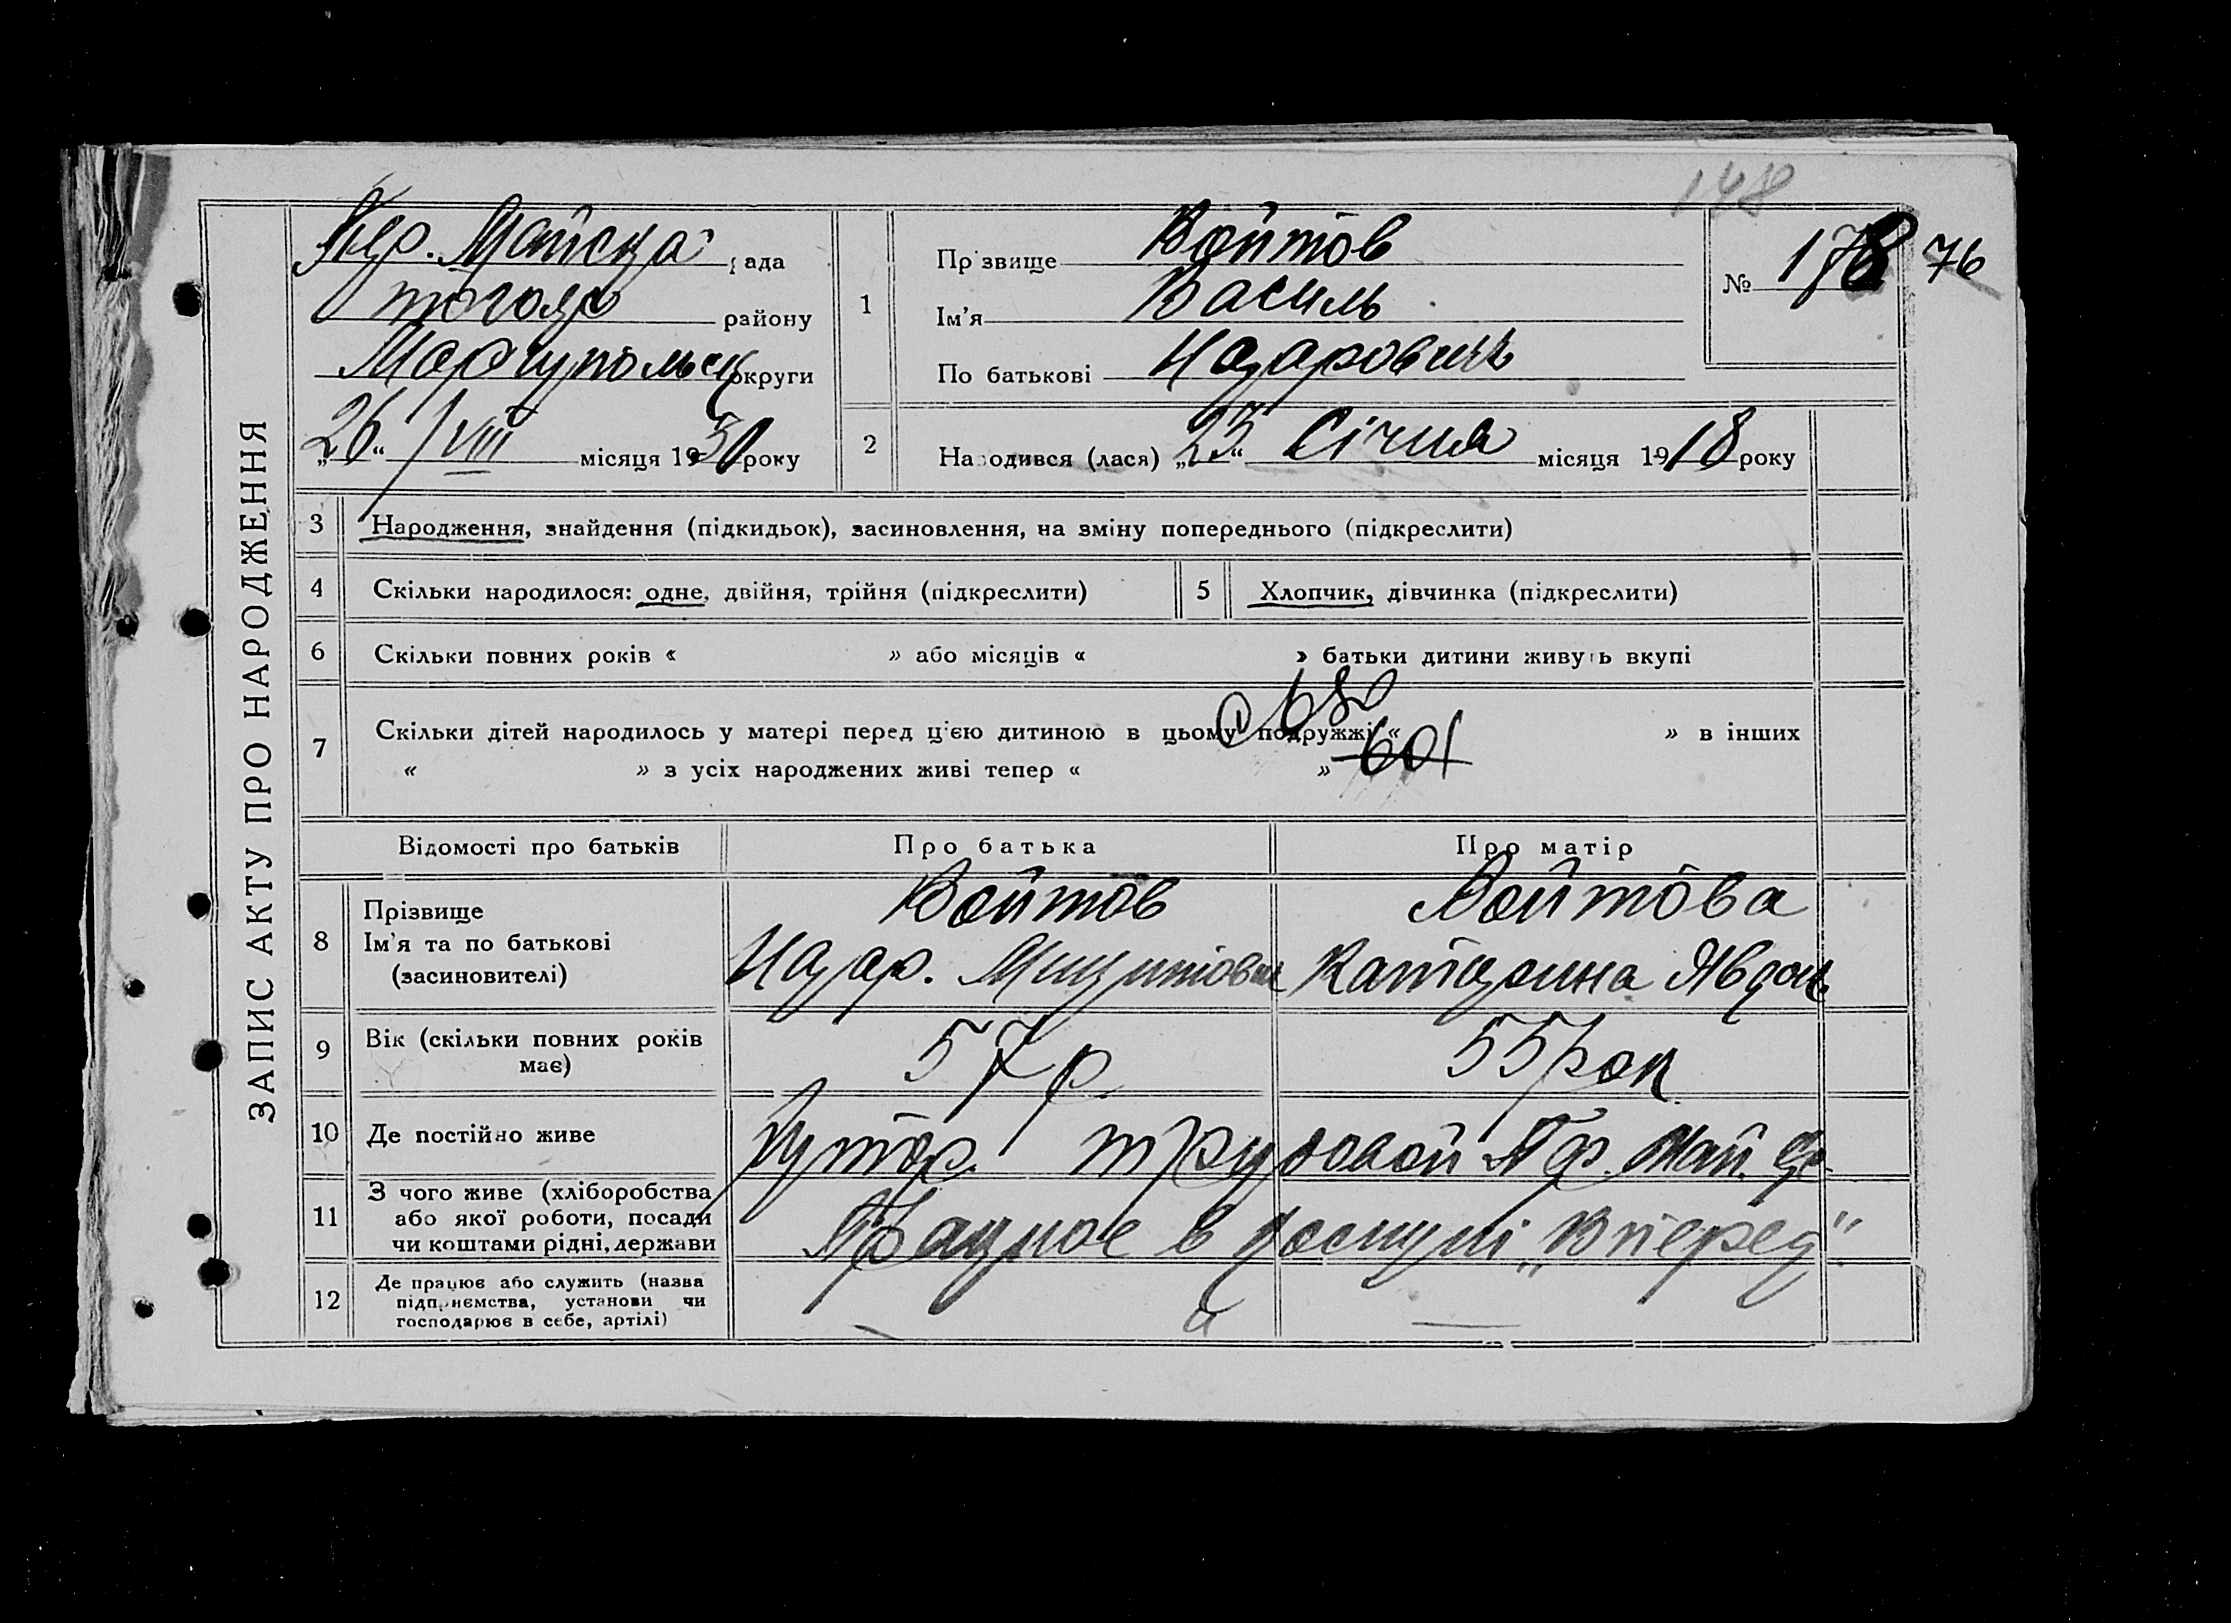 148
ЗАПИС АКТУ ПРО НАРОДЖЕННЯ
Пер. Майська рада
того ж району
Маріупольськ округи
„26“ VIII місяця 1930 року
1
Прізвище Войтов
Ім'я Василь
По батькові Назарович
№ 178 76
2 Народився (лася) „23“ Січня місяця 1918 року
3 Народження, знайдення (підкидьок), засиновлення, на зміну попереднього (підкреслити)
4 Скільки народилося: одне, двійня, трійня (підкреслити) 5 Хлопчик, дівчинка (підкреслити)
6 Скільки повних років « » або місяців « » батьки дитини живуть вкупі
7 Скільки дітей народилось у матері перед ц'єю дитиною в цьому подружжі « » в інших
« » з усіх народжених живі тепер « » 601
Відомості про батьків Про батька Про матір
8 Прізвище
Ім'я та по батькові
(засновителі)
Войтов
Назар.
Войтова
Катерина Явдок
9 Вік (скільки повних років має)
57 р
55 рок
10 Де постійно живе
Хутор. трудовой Пер. Май. Ср
11 З чого живе (хліборобства
або якої роботи, посади
чи коштами рідні, держави
Працює в „Вперед“
12 Де працює або служить (назва
підприємства, установи чи
господарює в себе, артілі)